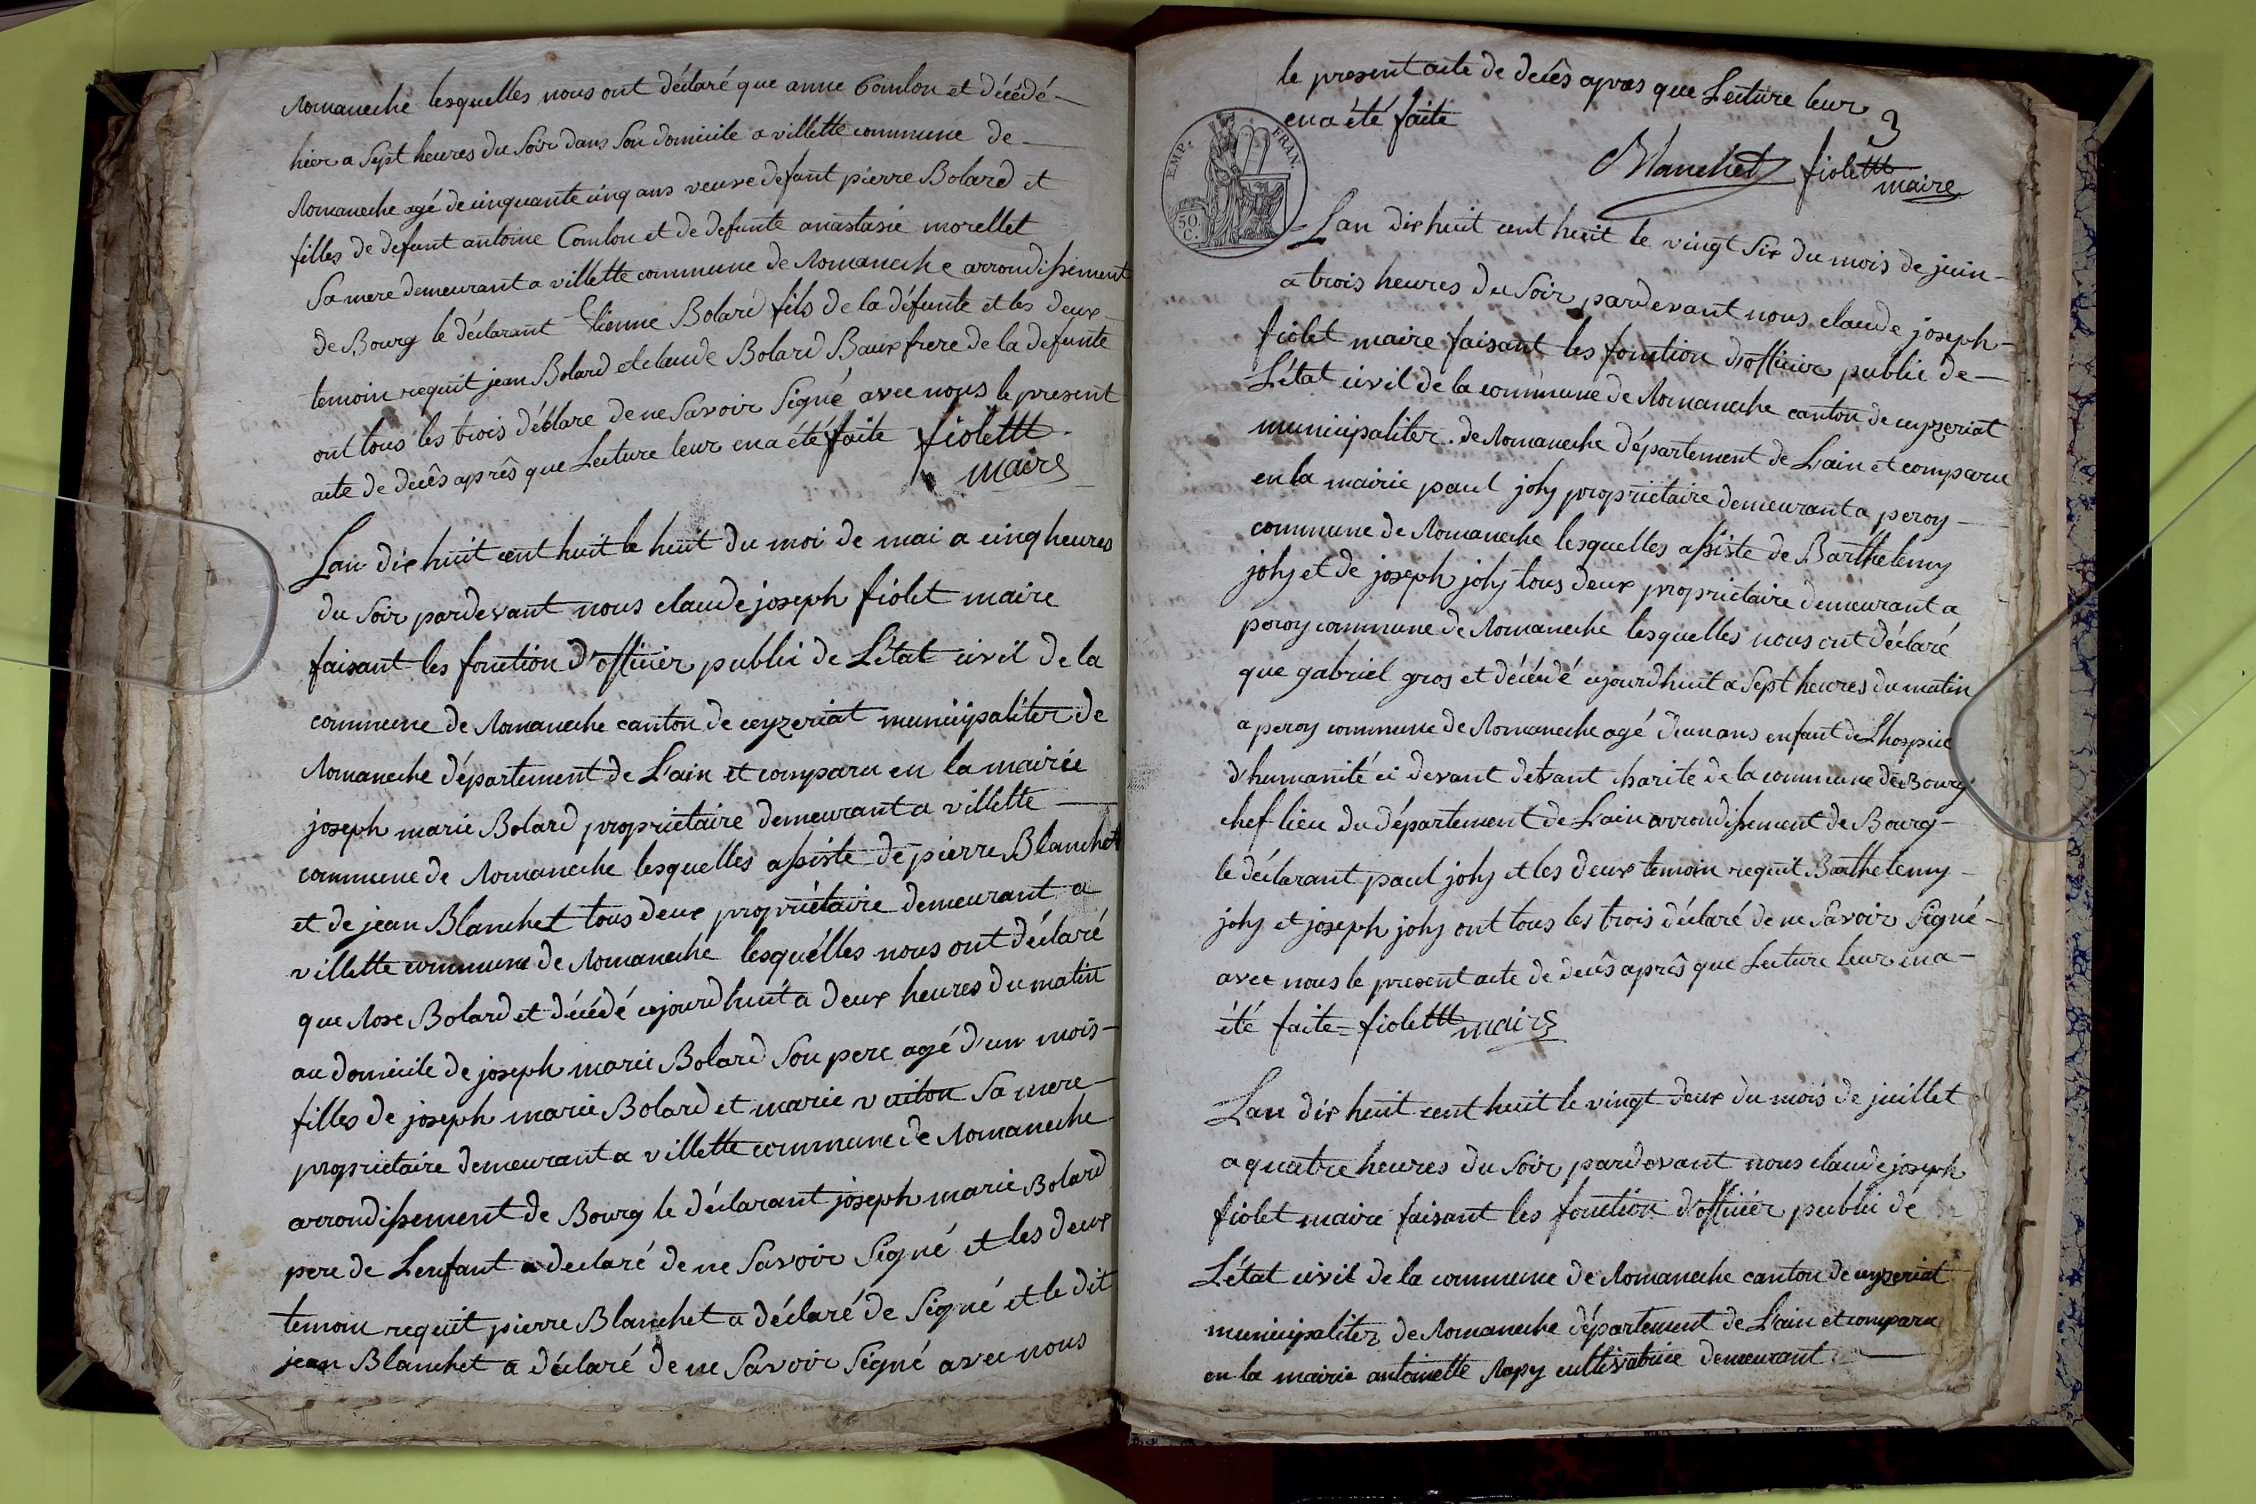 Romaneche lesquelles nous ont déclaré que anne Comlon et décédé
hier a Sept heures du Soir dans Son domicile a villette commune de
Romaneche agé de cinquante cinq ans veuve defunt pierre Bolard et
filles de defunt antoine Comlon et de defunte anastasie morellet
Sa mere demeurant a villette commune de Romaneche arrondissement
de Bourg le déclarant Etienne Bolard fils de la défunte et les deux
temoin requit jean Bolard et claude Bolard Baux frere de la defunte
ont tous les trois déclare de ne Savoir Signé avec nous le present
acte de decês aprês que Lecture leur en a été faite fiolettt
maire
Lan dix huit cent huit le huit du moi de mai a cinq heures
du Soir pardevant nous claude joseph fiolet maire
faisant les fonction d'officier public de L'état civil de la
commune de Romaneche canton de ceyzeriat municipaliter de
Romaneche département de L'ain et comparu en la mairie
joseph marie Bolard propriétaire demeurant a villette
commune de Romaneche lesquelles assiste de pierre Blanchet
et de jean Blanchet tous deux propriétaire demeurant a
villette commune de Romaneche lesquélles nous ont déclaré
que Rose Bolard et décédé ajourdhuit a deux heures du matin
au domicile de joseph marie Bolard Son pere agé d'un mois
filles de joseph marie Bolard et marie vuiton Sa mere
propriétaire demeurant a villette commune de Romaneche
arrondissement de Bourg le déclarant joseph marie Bolard
pere de Lenfant a declaré de ne Savoir Signé et les deux
temoin requit pierre Blanchet a déclaré de Signé et le dit
jean Blanchet a déclaré de ne Savoir Signé avec nous
le present acte de decês apres que Lecture leur
en a été faite
3
EMP. FRAN.
50 C.
Blanchet fiolettt
maire
Lan dix huit cent huit le vingt Six du mois de juin
a trois heures du Soir pardevant nous claude joseph
fiolet maire faisant les fonction d'officier public de
L'état civil de la commune de Romaneche canton de ceyzeriat
municipaliter de Romaneche département de L'ain et comparu
en la mairie paul joly propriétaire demeurant a peroy
commune de Romaneche lesquelles assiste de Barthelemy
joly et de joseph joly tous deux propriétaire demeurant a
peroy commune de Romaneche lesquelles nous ont déclaré
que gabriel gros et décédé ajourdhuit a Sept heures du matin
a peroy commune de Romaneche agé d'un ans enfant de Lhospice
d'humanité ci devant detrant charite de la commune de Bourg
chef lieu du département de L'ain arrondissement de Bourg
le déclarant paul joly et les deux temoin requit Barthelemy
joly et joseph joly ont tous les trois déclaré de ne Savoir Signé
avec nous le present acte de decês aprês que Lecture leur en a
été faite = fiolettt maire
Lan dix huit cent huit le vingt deux du mois de juillet
a quatre heures du Soir pardevant nous claude joseph
fiolet maire faisant les fonction d'officiér public de
L'état civil de la commune de Romaneche canton de ceyzeriat
municipaliter de Romaneche département de L'ain et comparu
en la mairie antoinette Rapy cultivatrice demeurant